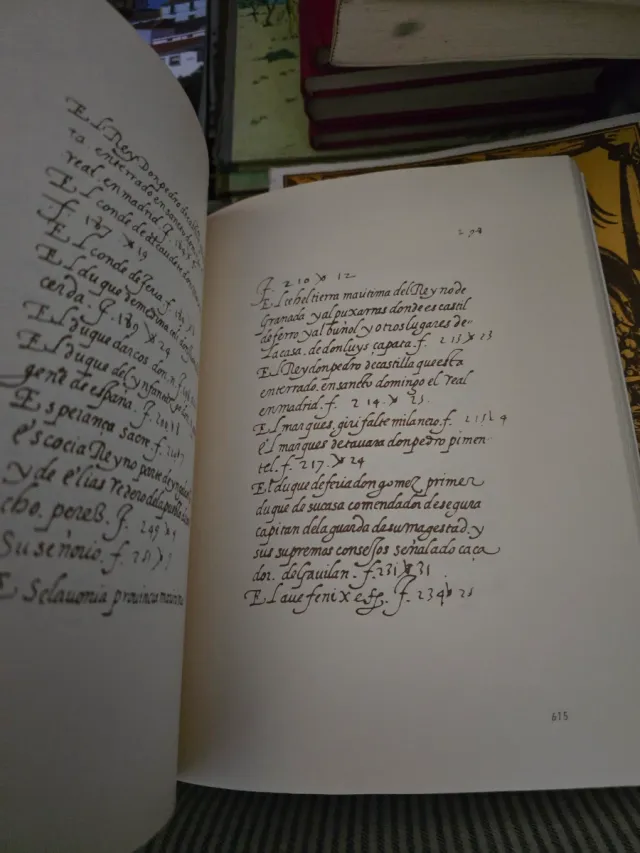 El Rey Don pedro
ta. enterrado en sancto
real, en madrid f.
El conde de
f. 187. 19
El conde deferia. f.
El duque demedina
cerda. f. 189 24
El duque darcos. don
El duque del ynfantado
gente de españa. f.
Esperança sacra. f.
escocia Reyno
y de elias
cho. pereB. f. 249
Su señorio. f.
Eselauonia prouincia
298
f. 210 12
El cehel tierra mauitima del Reyno de
Granada y alpuxarras donde es castil
deferro y albuñol y otros lugares de
la casa. de don luys çapata. f. 213 23
El Rey don pedro decastilla que esta
enterrado. en sancto domingo el real
en madrid. f. 214. 23.
El marques, giri falte milancio. f.
el marques detauara don pedro pimen
tel. f. 217. 24
El duque deferia don gomez primer
duque de sucasa comendador de segura
capitan dela guarda de sumagestad. y
sus supremos consejos señalado caça
dor. del gauilan. f. 231 31
El aue fenix esp. f. 234 21
615